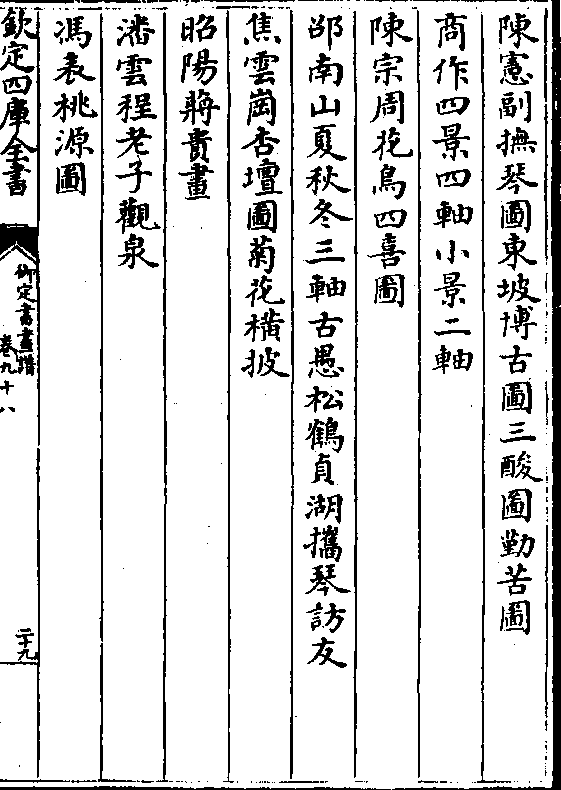 陳憲副撫琴圖東坡博古圖三酸圖勤苦圖
商作四景四軸小景二軸
陳宗周花鳥四喜圖
邵南山夏秋冬三軸古愚松鶴貞湖攜琴訪友
焦雲崗杏壇圖菊花橫披
昭陽蔣貴畫
潘雲程老子觀泉
馮表桃源圖
欽定四庫全書
御定書畫譜
卷九十八
二十九